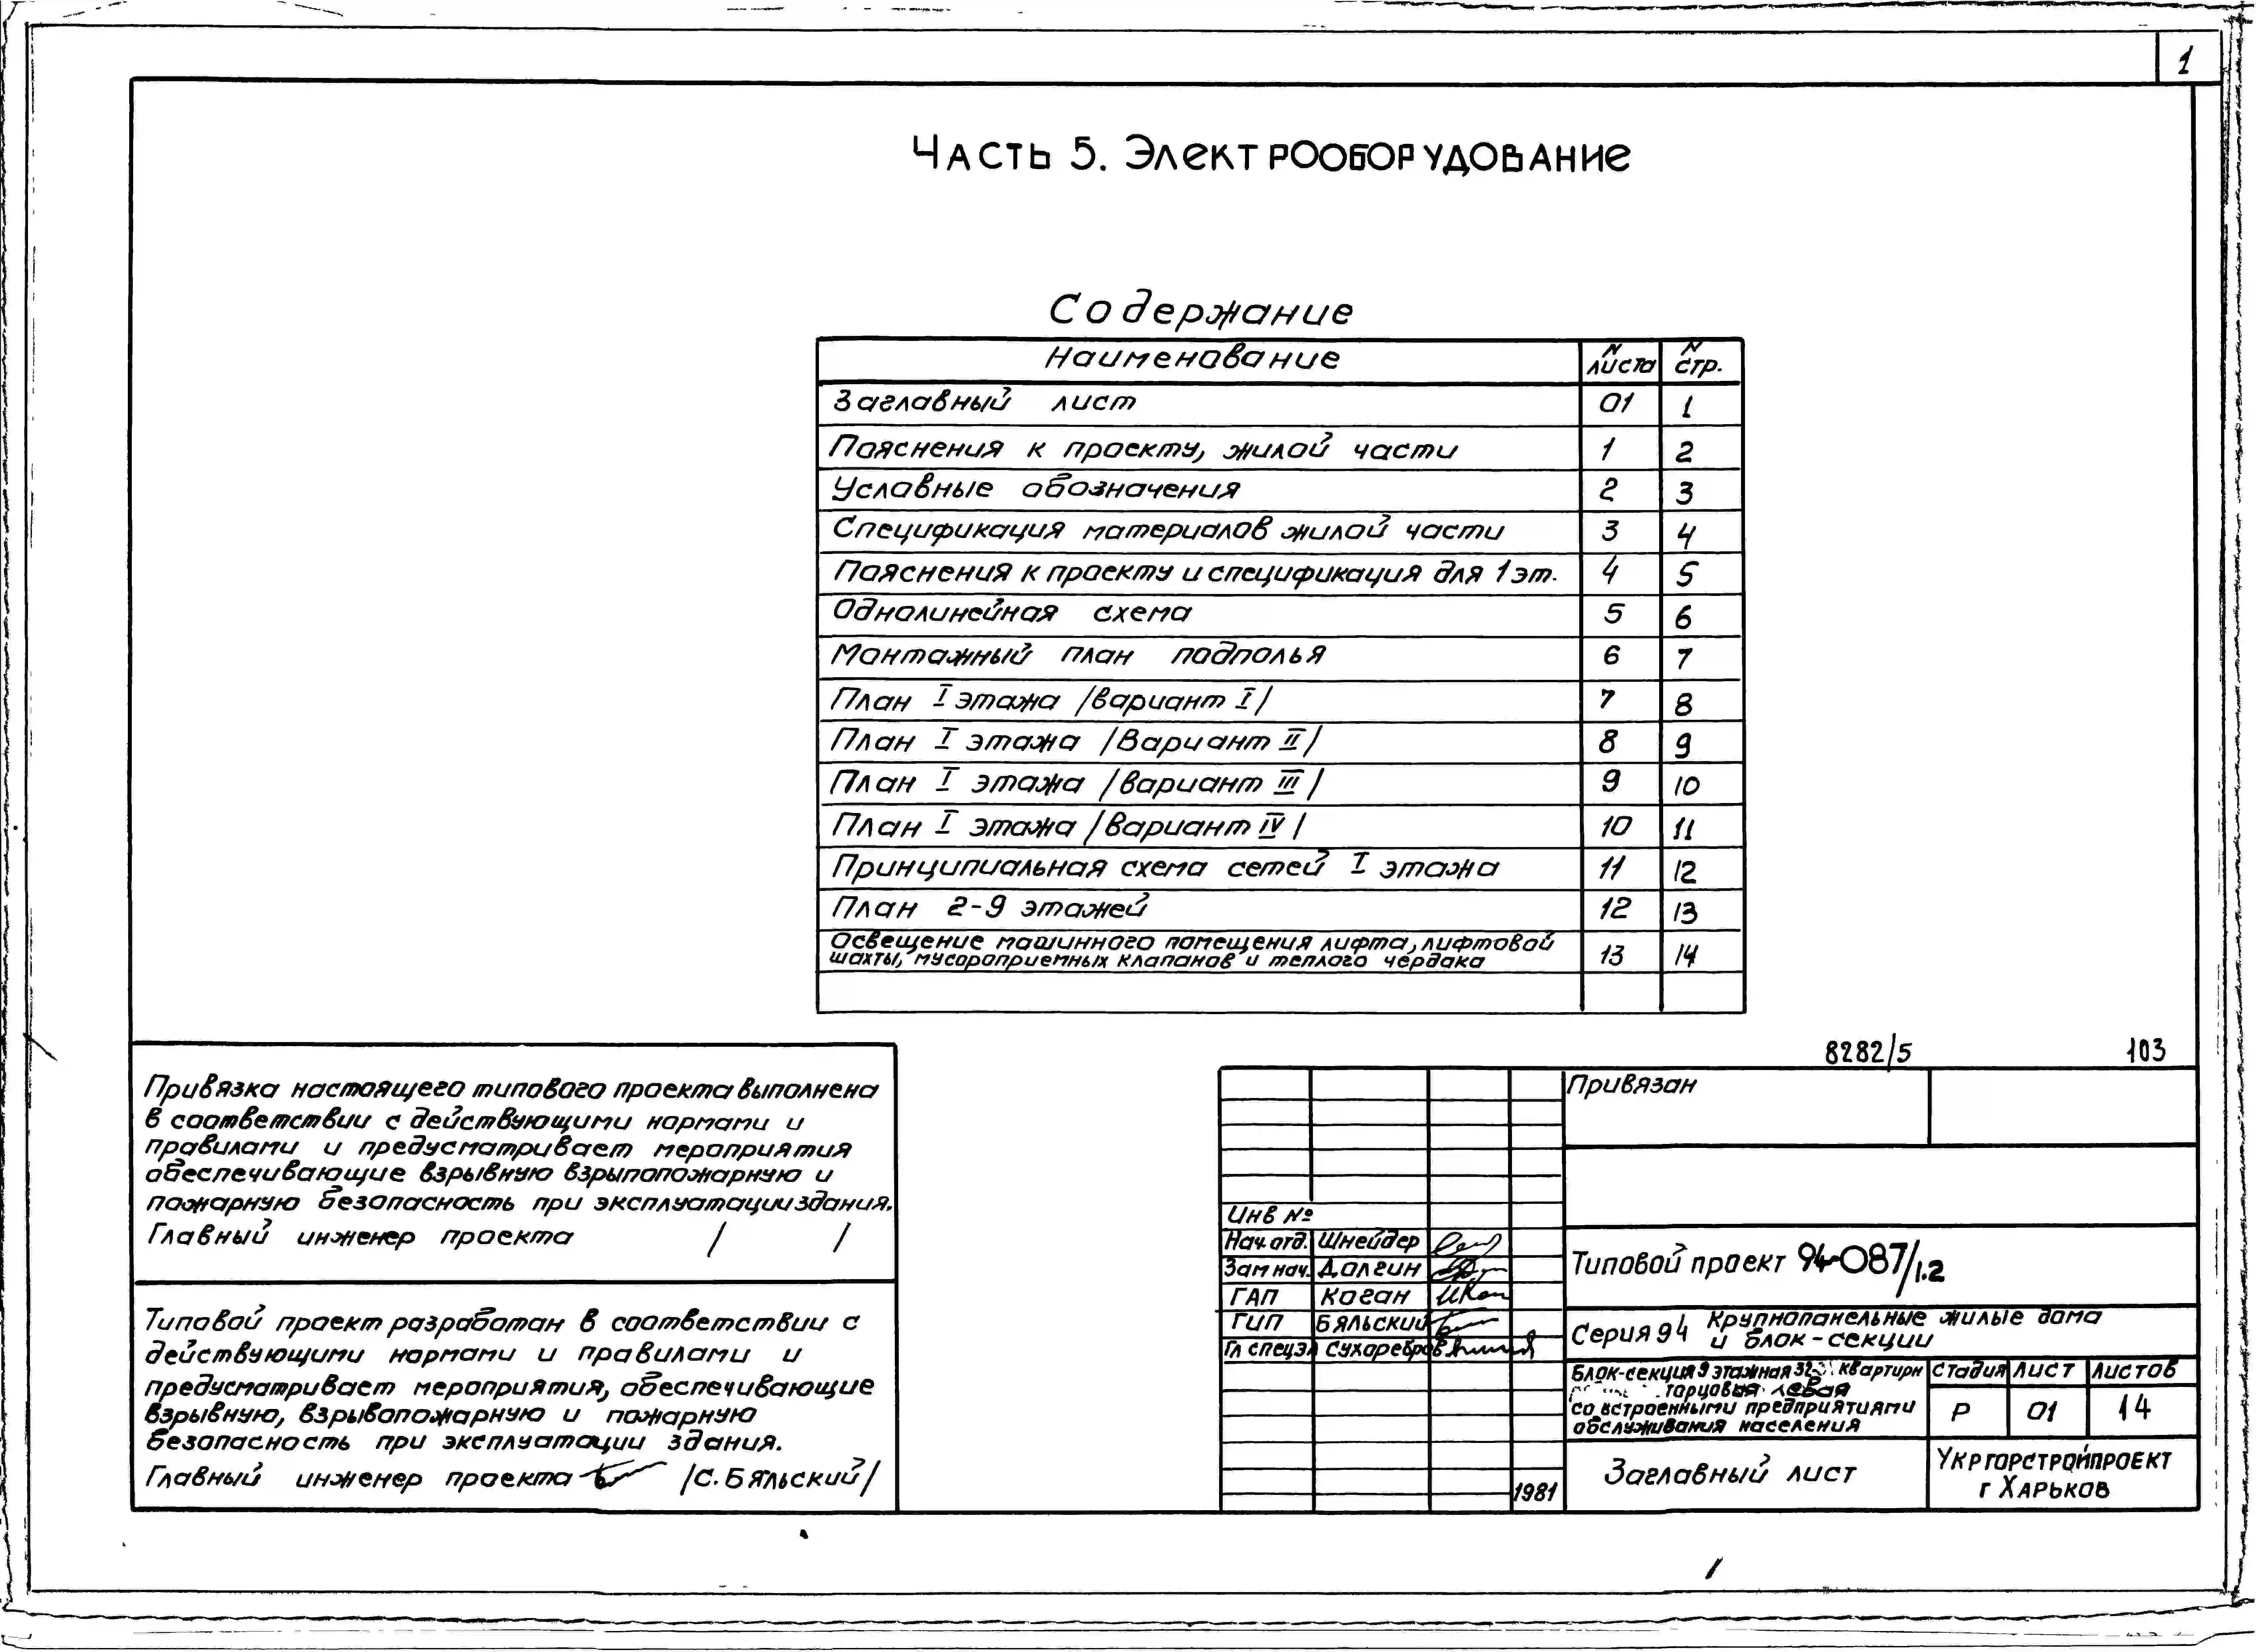 1
Часть 5. Электрооборудование
Содержание
Наименование | N листа | N стр.
Заглавный лист | 01 | 1
Пояснения к проекту, жилой части | 1 | 2
Условные обозначения | 2 | 3
Спецификация материалов жилой части | 3 | 4
Пояснения к проекту и спецификация для 1 эт. | 4 | 5
Однолинейная схема | 5 | 6
Монтажный план подполья | 6 | 7
План I этажа /вариант I/ | 7 | 8
План I этажа /Вариант II/ | 8 | 9
План I этажа /вариант III/ | 9 | 10
План I этажа /вариант IV/ | 10 | 11
Принципиальная схема сетей I этажа | 11 | 12
План 2-9 этажей | 12 | 13
Освещение машинного помещения лифта, лифтовой
шахты, мусороприемных клапанов и теплого чердака | 13 | 14
Привязка настоящего типового проекта выполнена
в соответствии с действующими нормами и
правилами и предусматривает мероприятия
обеспечивающие взрывную взрыпопожарную и
пожарную безопасность при эксплуатации здания.
Главный инженер проекта / /
Типовой проект разработан в соответствии с
действующими нормами и правилами и
предусматривает мероприятия, обеспечивающие
взрывную, взрывопожарную и пожарную
безопасность при эксплуатации здания.
Главный инженер проекта /С. Бяльский/
8282/5 103
Привязан
Инв №
Нач. отд. Шнейдер
Зам нач. Долгин
ГАП Коган
ГИП Бяльский
Гл спец эл Сухаребров
1981
Типовой проект 94-087/1.2
Серия 94 Крупнопанельные жилые дома
и блок-секции
Блок-секция 9 этажная 32-х квартирн
торцовая левая
со встроенными предприятиями
обслуживания населения
Стадия Лист Листов
Р 01 14
Заглавный лист
Укргорстройпроект
г Харьков